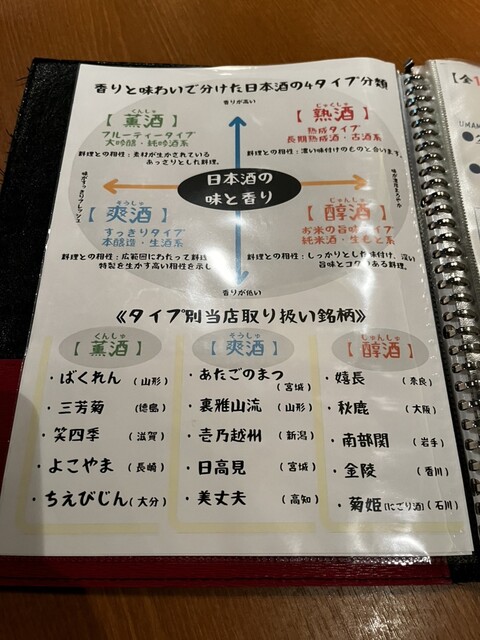 香りと味わいで分けた日本酒の4タイプ分類
香りが高い
くんしゅ
【薫酒】
フルーティータイプ
大吟醸・純吟酒系
料理との相性：素材が生かされている
あっさりとした料理。
じゅくしゅ
【熟酒】
熟成タイプ
長期熟成酒・古酒系
料理との相性：濃い味付けのものと合います。
日本酒の
味と香り
そうしゅ
【爽酒】
すっきりタイプ
本醸造・生酒系
料理との相性：広範囲にわたって料理
特製を生かす高い相性を示し
じゅんしゅ
【醇酒】
お米の旨味タイプ
純米酒・生もと系
料理との相性：しっかりとした味付け、深い
旨味とコクのある料理。
香りが低い
《タイプ別当店取り扱い銘柄》
くんしゅ
【薫酒】
・ばくれん（山形）
・三芳菊（徳島）
・笑四季（滋賀）
・よこやま（長崎）
・ちえびじん（大分）
そうしゅ
【爽酒】
・あたごのまつ
（宮城）
・裏雅山流（山形）
・壱乃越州（新潟）
・日高見（宮城）
・美丈夫（高知）
じゅんしゅ
【醇酒】
・嬉長（奈良）
・秋鹿（大阪）
・南部関（岩手）
・金陵（香川）
・菊姫（にごり酒）（石川）
【全1
UMAM